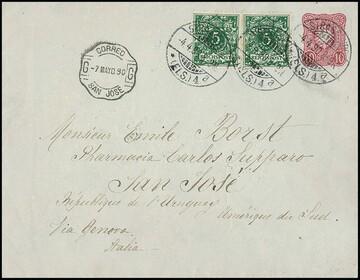 CORREO
-7 MAYO.90
SAN JOSE
5
5
10
(ELS.) 4 a
Monsieur Emile Borst
Pharmacia Carlos Supparo
San José
République de l'Uruguay
Amérique du Sud.
Via Genova
Italia.